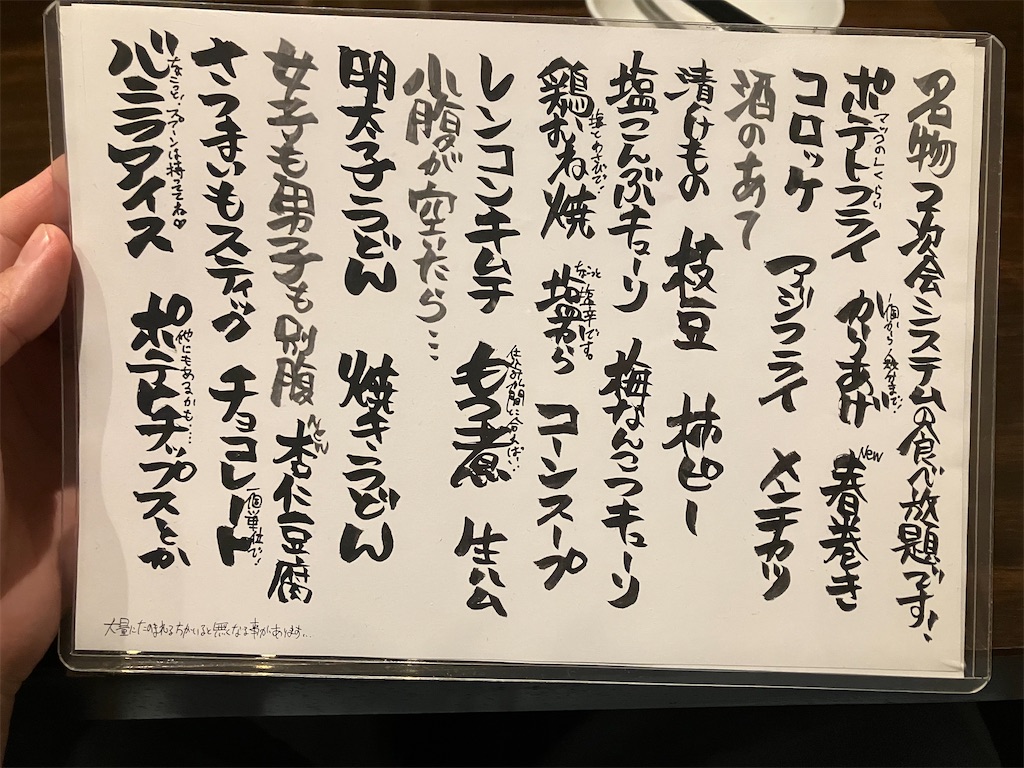 名物 2次会システムの食べ放題です!
ポテトフライ
マックのLくらい
からあげ
1個から人数分まで!
春巻き
New
コロッケ
アジフライ
メンチカツ
酒のあて
漬けもの
枝豆
柿ピー
塩こんぶキューリ
梅なんこつキューリ
鶏むね焼
塩とわさびで!
塩から
ちょっと塩辛です。
コーンスープ
レンコンキムチ
もつ煮
仕込みが間に合えば…
生ハム
小腹が空いたら…
明太子うどん
焼きうどん
女子も男子も別腹
杏仁豆腐
New
さつまいもスティック
チョコレート
一個単位で!
バニラアイス
なこそ、スプーンは持っててね♡
ポテトチップスとか
他にもあるかも…
大量にたのまれる方がいると無くなる事があります…